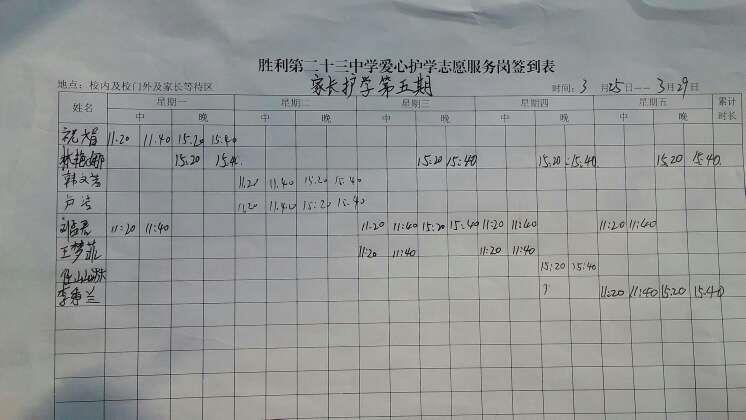 胜利第二十三中学爱心护学志愿服务岗签到表
家长护学第五期
地点：校内及校门外及家长等待区 时间：3月25日——3月29日
姓名 星期一 星期二 星期三 星期四 星期五 累计时长
中 晚 中 晚 中 晚 中 晚 中 晚
11:20 11.40 15:20 15:40
15:20 15:40 15:20 15:40 15:20 15:40 15.20 15:40
11.20 11.40 15.20 15.40
卢 11.20 11.40 15:20 15.40
11:20 11:40 11:20 11:40 15:20 15:40 11:20 11:40 11:20 11:40
王梦菲 11:20 11:40 11:20 11:40
15:20 15:40
李秀兰 11:20 11:40 15:20 15:40